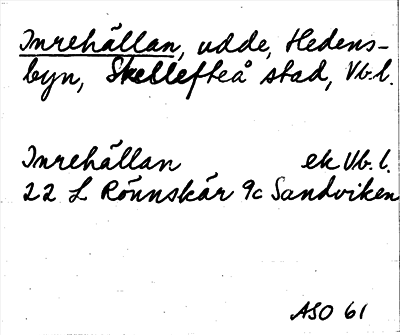 Inrehällan, udde, Hedens-
byn, Skellefteå stad, Vb.l.
Inrehällan ek Vb.l.
22 L Rönnskär 9c Sandviken
ASO 61